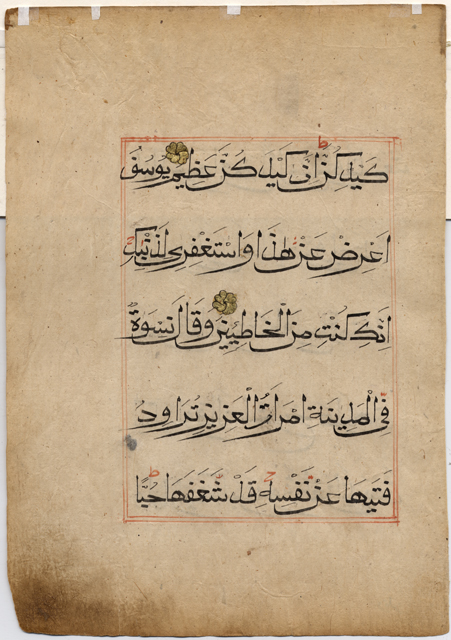 كَيْدِكُنَّ اِنَّ كَيْدَ كُنَّ عَظِيمٌ يُوسُفُ
اَعْرِضْ عَنْ هٰذَا وَاسْتَغْفِرِى لِذَنْبِكِ
اِنَّكِ كُنْتِ مِنَ الْخَاطِئِينَ وَقَالَ نِسْوَةٌ
فِى الْمَدِينَةِ امْرَاَتُ الْعَزِيزِ تُرَاوِدُ
فَتٰيهَا عَنْ نَفْسِهِ قَدْ شَغَفَهَا حُبًّا